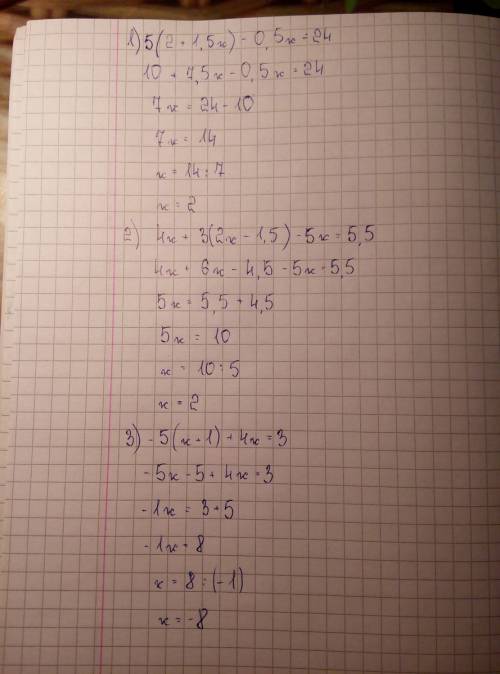 1) 5(2+1,5x)-0,5x=24
10+7,5x-0,5x=24
7x=24-10
7x=14
x=14:7
x=2
2) 4x+3(2x-1,5)-5x=5,5
4x+6x-4,5-5x=5,5
5x=5,5+4,5
5x=10
x=10:5
x=2
3) -5(x+1)+4x=3
-5x-5+4x=3
-1x=3+5
-1x=8
x=8:(-1)
x=-8